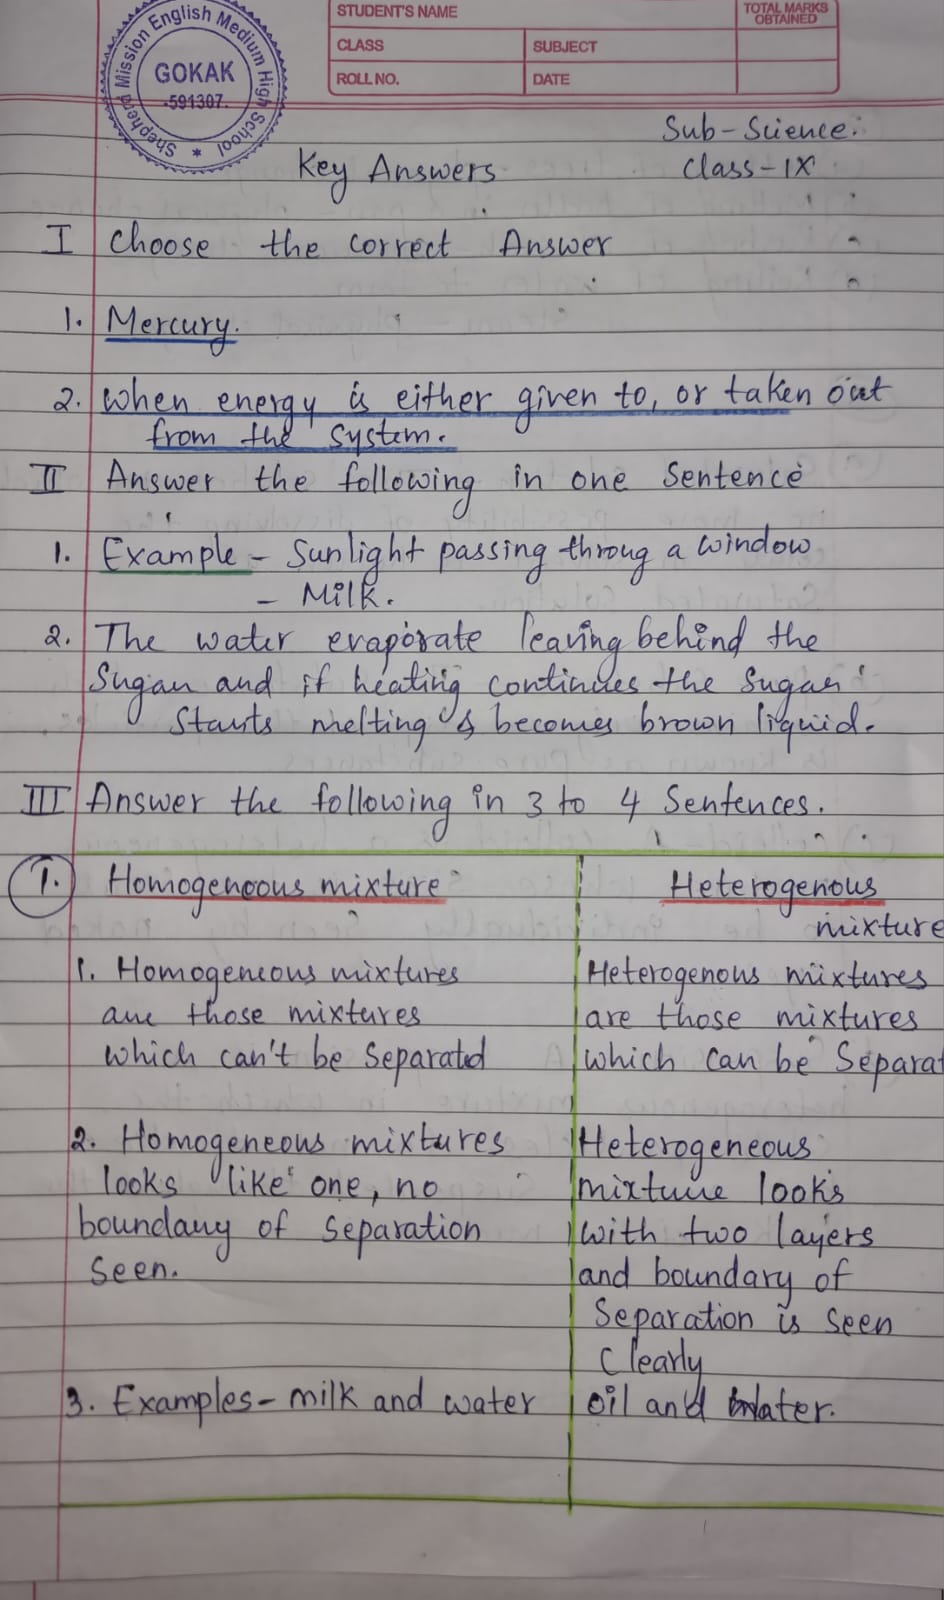 Shepherd Mission English Medium High School *
GOKAK
-591307.
STUDENT'S NAME
CLASS
SUBJECT
ROLL NO.
DATE
TOTAL MARKS
OBTAINED
Sub-Science.
Key Answers
Class-IX
I Choose the correct Answer
1. Mercury.
2. When energy is either given to, or taken out
from the system.
II Answer the following in one Sentence
1. Example - Sunlight passing throug a window
- Milk.
2. The water evaporate leaving behind the
Sugar and if heating continues the Sugar
Starts melting & becomes brown liquid.
III Answer the following in 3 to 4 Sentences.
1. Homogeneous mixture
Heterogenous
mixture
1. Homogeneous mixtures
are those mixtures
which can't be Separated
Heterogenous mixtures
are those mixtures
which can be Separat
2. Homogeneous mixtures
looks like one, no
boundary of Separation
Seen.
Heterogeneous
mixture looks
with two layers
and boundary of
Separation is seen
Clearly
3. Examples - milk and water
oil and water.